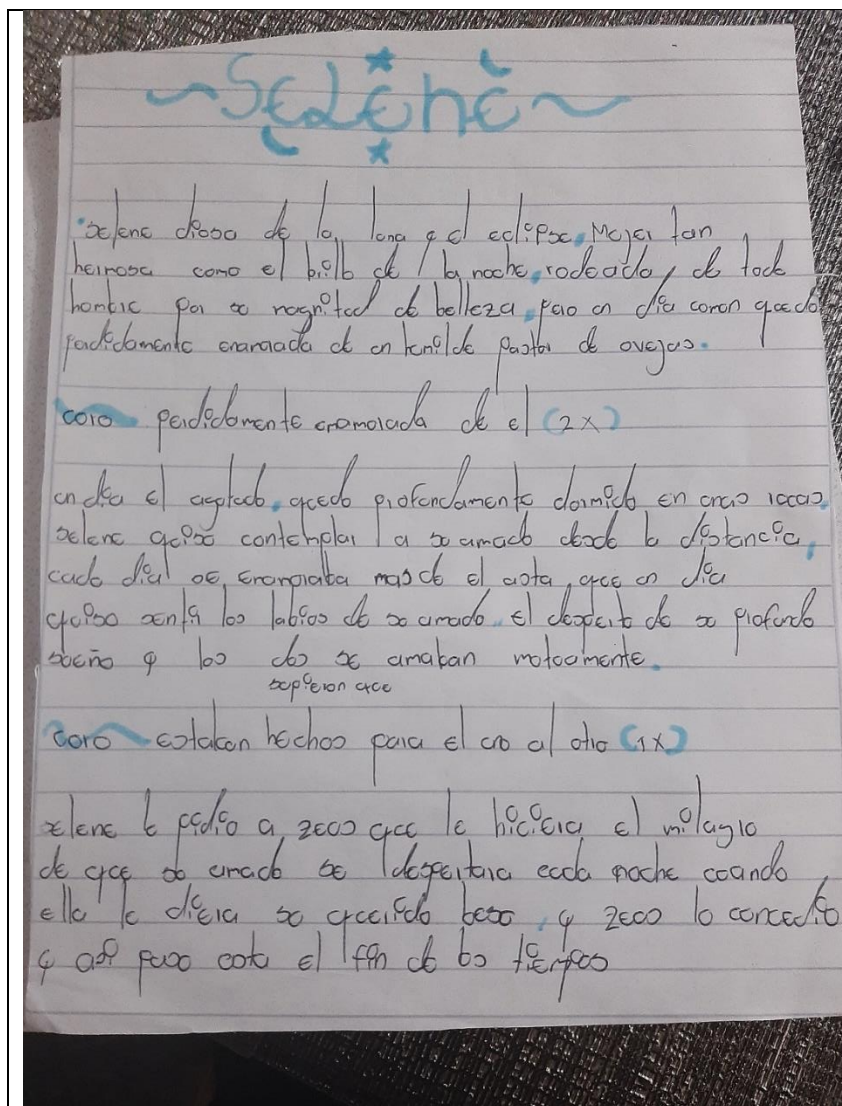 ~Selene~
selene diosa de la luna y el eclipse, Mujer tan
hermosa como el brillo de la noche, rodeada, de todo
hombre por su magnitud de belleza, pero un dia comun quedo
perdidamente enamorada de un humilde pastor de ovejas.
coro perdidamente enamorada de el (2x)
un dia el agotado, quedo profundamente dormido en unas rocas,
selene quiso contemplar a su amado desde la distancia,
cada dia se enamoraba mas de el asta, que un dia
quiso sentir los labios de su amado. El desperto de su profundo
sueño y los dos se amaban mutuamente.
supieron que
coro estaban hechos para el uno al otro (1x)
selene le pidio a zeus que le hiciera el milagro
de que su amado se despertara cada noche cuando
ella le diera su querido beso, y zeus lo concedio
y asi paso asta el fin de los tiempos